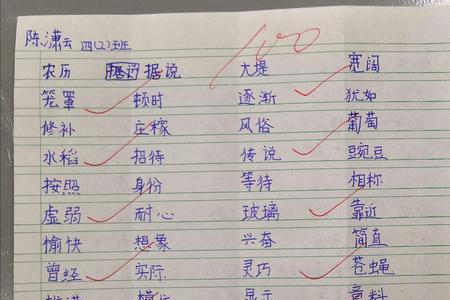 陈潇云 四(2)班
100
农历 据说 大堤 宽阔
笼罩 顿时 逐渐 犹如
修补 庄稼 风俗 葡萄
水稻 招待 传说 豌豆
按照 身份 等待 相称
虚弱 耐心 玻璃 靠近
愉快 想象 兴奋 简直
曾经 实际 灵巧 苍蝇